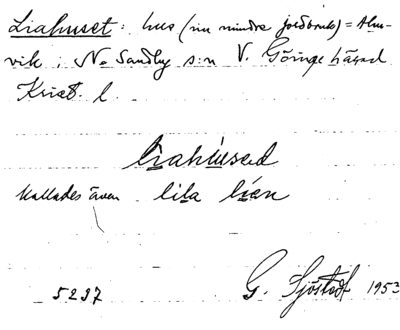 Liahuset: hus (nu mindre jordbruk) = Alm-
vik i N. Sandby s:n V. Göinge härad
Krist. l.
liahùsed
kallades även lila lien
5237 G. Sjöstedt 1953